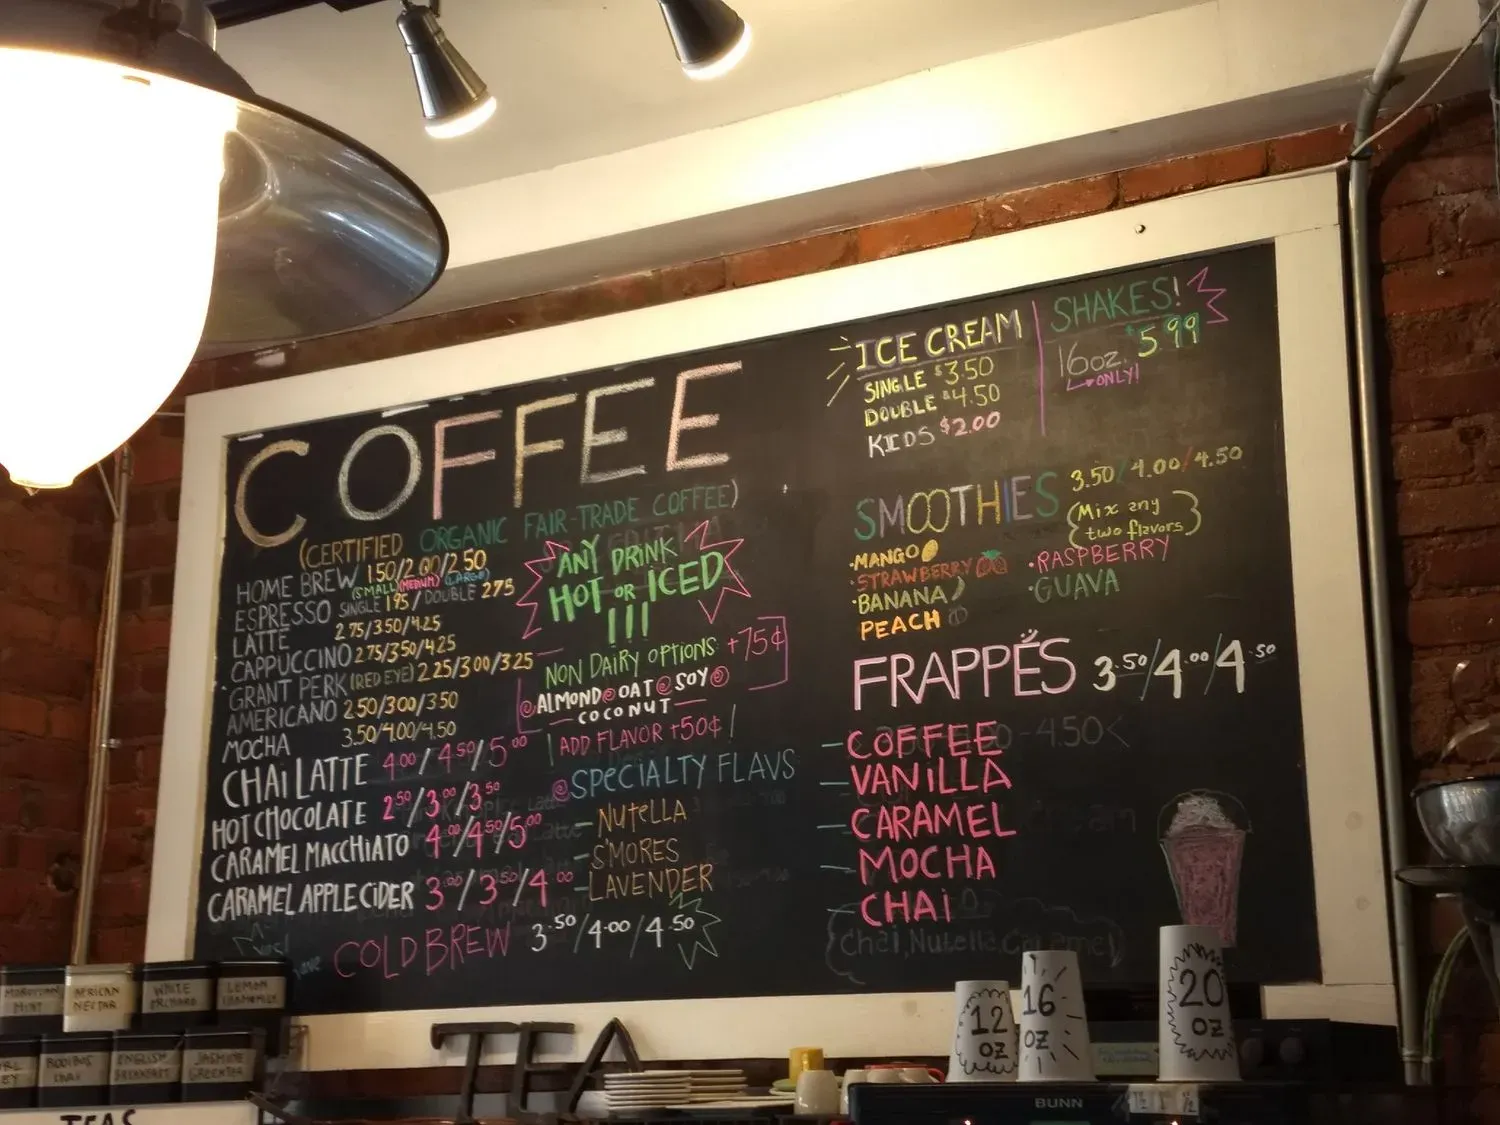 COFFEE
(CERTIFIED ORGANIC FAIR-TRADE COFFEE)
HOME BREW 1.50/2.00/2.50
(SMALL) (MEDIUM) (LARGE)
ESPRESSO SINGLE 1.95 / DOUBLE 2.75
LATTE 2.75/3.50/4.25
CAPPUCCINO 2.75/3.50/4.25
GRANT PERK (RED EYE) 2.25/3.00/3.25
AMERICANO 2.50/3.00/3.50
MOCHA 3.50/4.00/4.50
CHAI LATTE 4.00/4.50/5.00
HOT CHOCOLATE 2.50/3.00/3.50
CARAMEL MACCHIATO 4.00/4.50/5.00
CARAMEL APPLE CIDER 3.00/3.50/4.00
COLD BREW 3.50/4.00/4.50
ANY DRINK
HOT OR ICED
!!!
NON DAIRY OPTIONS +75¢
ALMOND OAT SOY
COCONUT
ADD FLAVOR +50¢
SPECIALTY FLAVS
- NUTELLA
- S'MORES
- LAVENDER
ICE CREAM
SINGLE $3.50
DOUBLE $4.50
KIDS $2.00
SHAKES!
16oz. $5.99
ONLY!
SMOOTHIES 3.50/4.00/4.50
(Mix any
two flavors)
•MANGO
•STRAWBERRY
•BANANA
•PEACH
•RASPBERRY
•GUAVA
FRAPPÉS 3.50/4.00/4.50
- COFFEE
- VANILLA
- CARAMEL
- MOCHA
- CHAI
Chai, Nutella, Caramel
MOROCCAN
MINT
AFRICAN
NECTAR
WHITE
ORCHARD
LEMON
CHAMOMILE
ROOIBOS
CHAI
ENGLISH
BREAKFAST
JASMINE
GREEN TEA
TEAS
TEA
12
OZ
16
OZ
20
OZ
BUNN